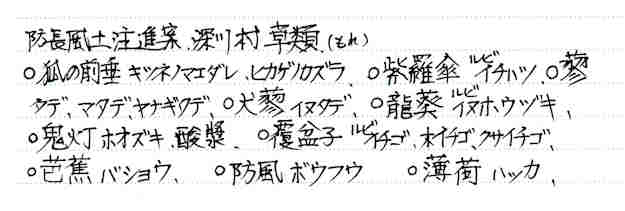 防長風土注進案 深川村 草類 (それ)
○狐の前垂 キツネノマエダレ、ヒカゲノカズラ、○紫羅傘 ルビイチハツ、○蓼
タデ、マタデ、ヤナギタデ、○犬蓼 イヌタデ、○龍葵 ルビイヌホウヅキ、
○鬼灯 ホオズキ、酸漿、○覆盆子 ルビイチゴ、木イチゴ、クサイチゴ、
○芭蕉 バショウ、○防風 ボウフウ ○薄荷 ハッカ、